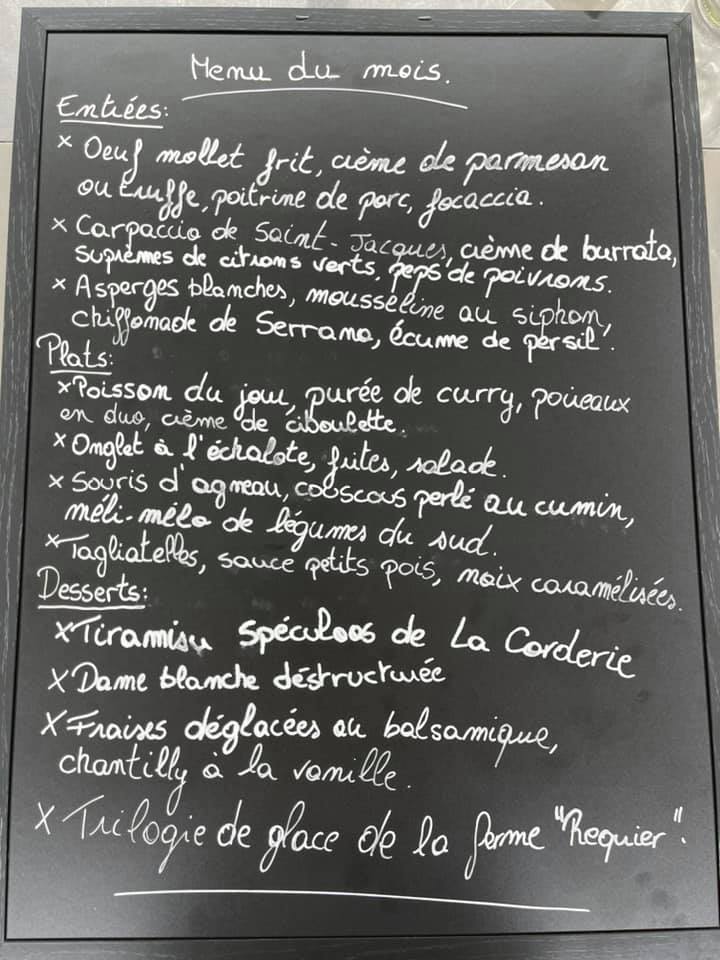 Menu du mois.
Entrées:
x Oeuf mollet frit, crème de parmesan
ou truffe, poitrine de porc, focaccia.
x Carpaccio de Saint-Jacques, crème de burrata,
suprêmes de citrons verts, peps de poivrons.
x Asperges blanches, mousseline au siphon,
chiffonnade de Serrano, écume de persil.
Plats:
x Poisson du jour, purée de curry, poireaux
en duo, crème de ciboulette.
x Onglet à l'échalote, frites, salade.
x Souris d'agneau, couscous perlé au cumin,
méli-mélo de légumes du sud.
x Tagliatelles, sauce petits pois, noix caramélisées.
Desserts:
x Tiramisu Spéculoos de La Corderie
x Dame blanche déstructurée
x Fraises déglacées au balsamique,
chantilly à la vanille.
x Trilogie de glace de la ferme "Requier".